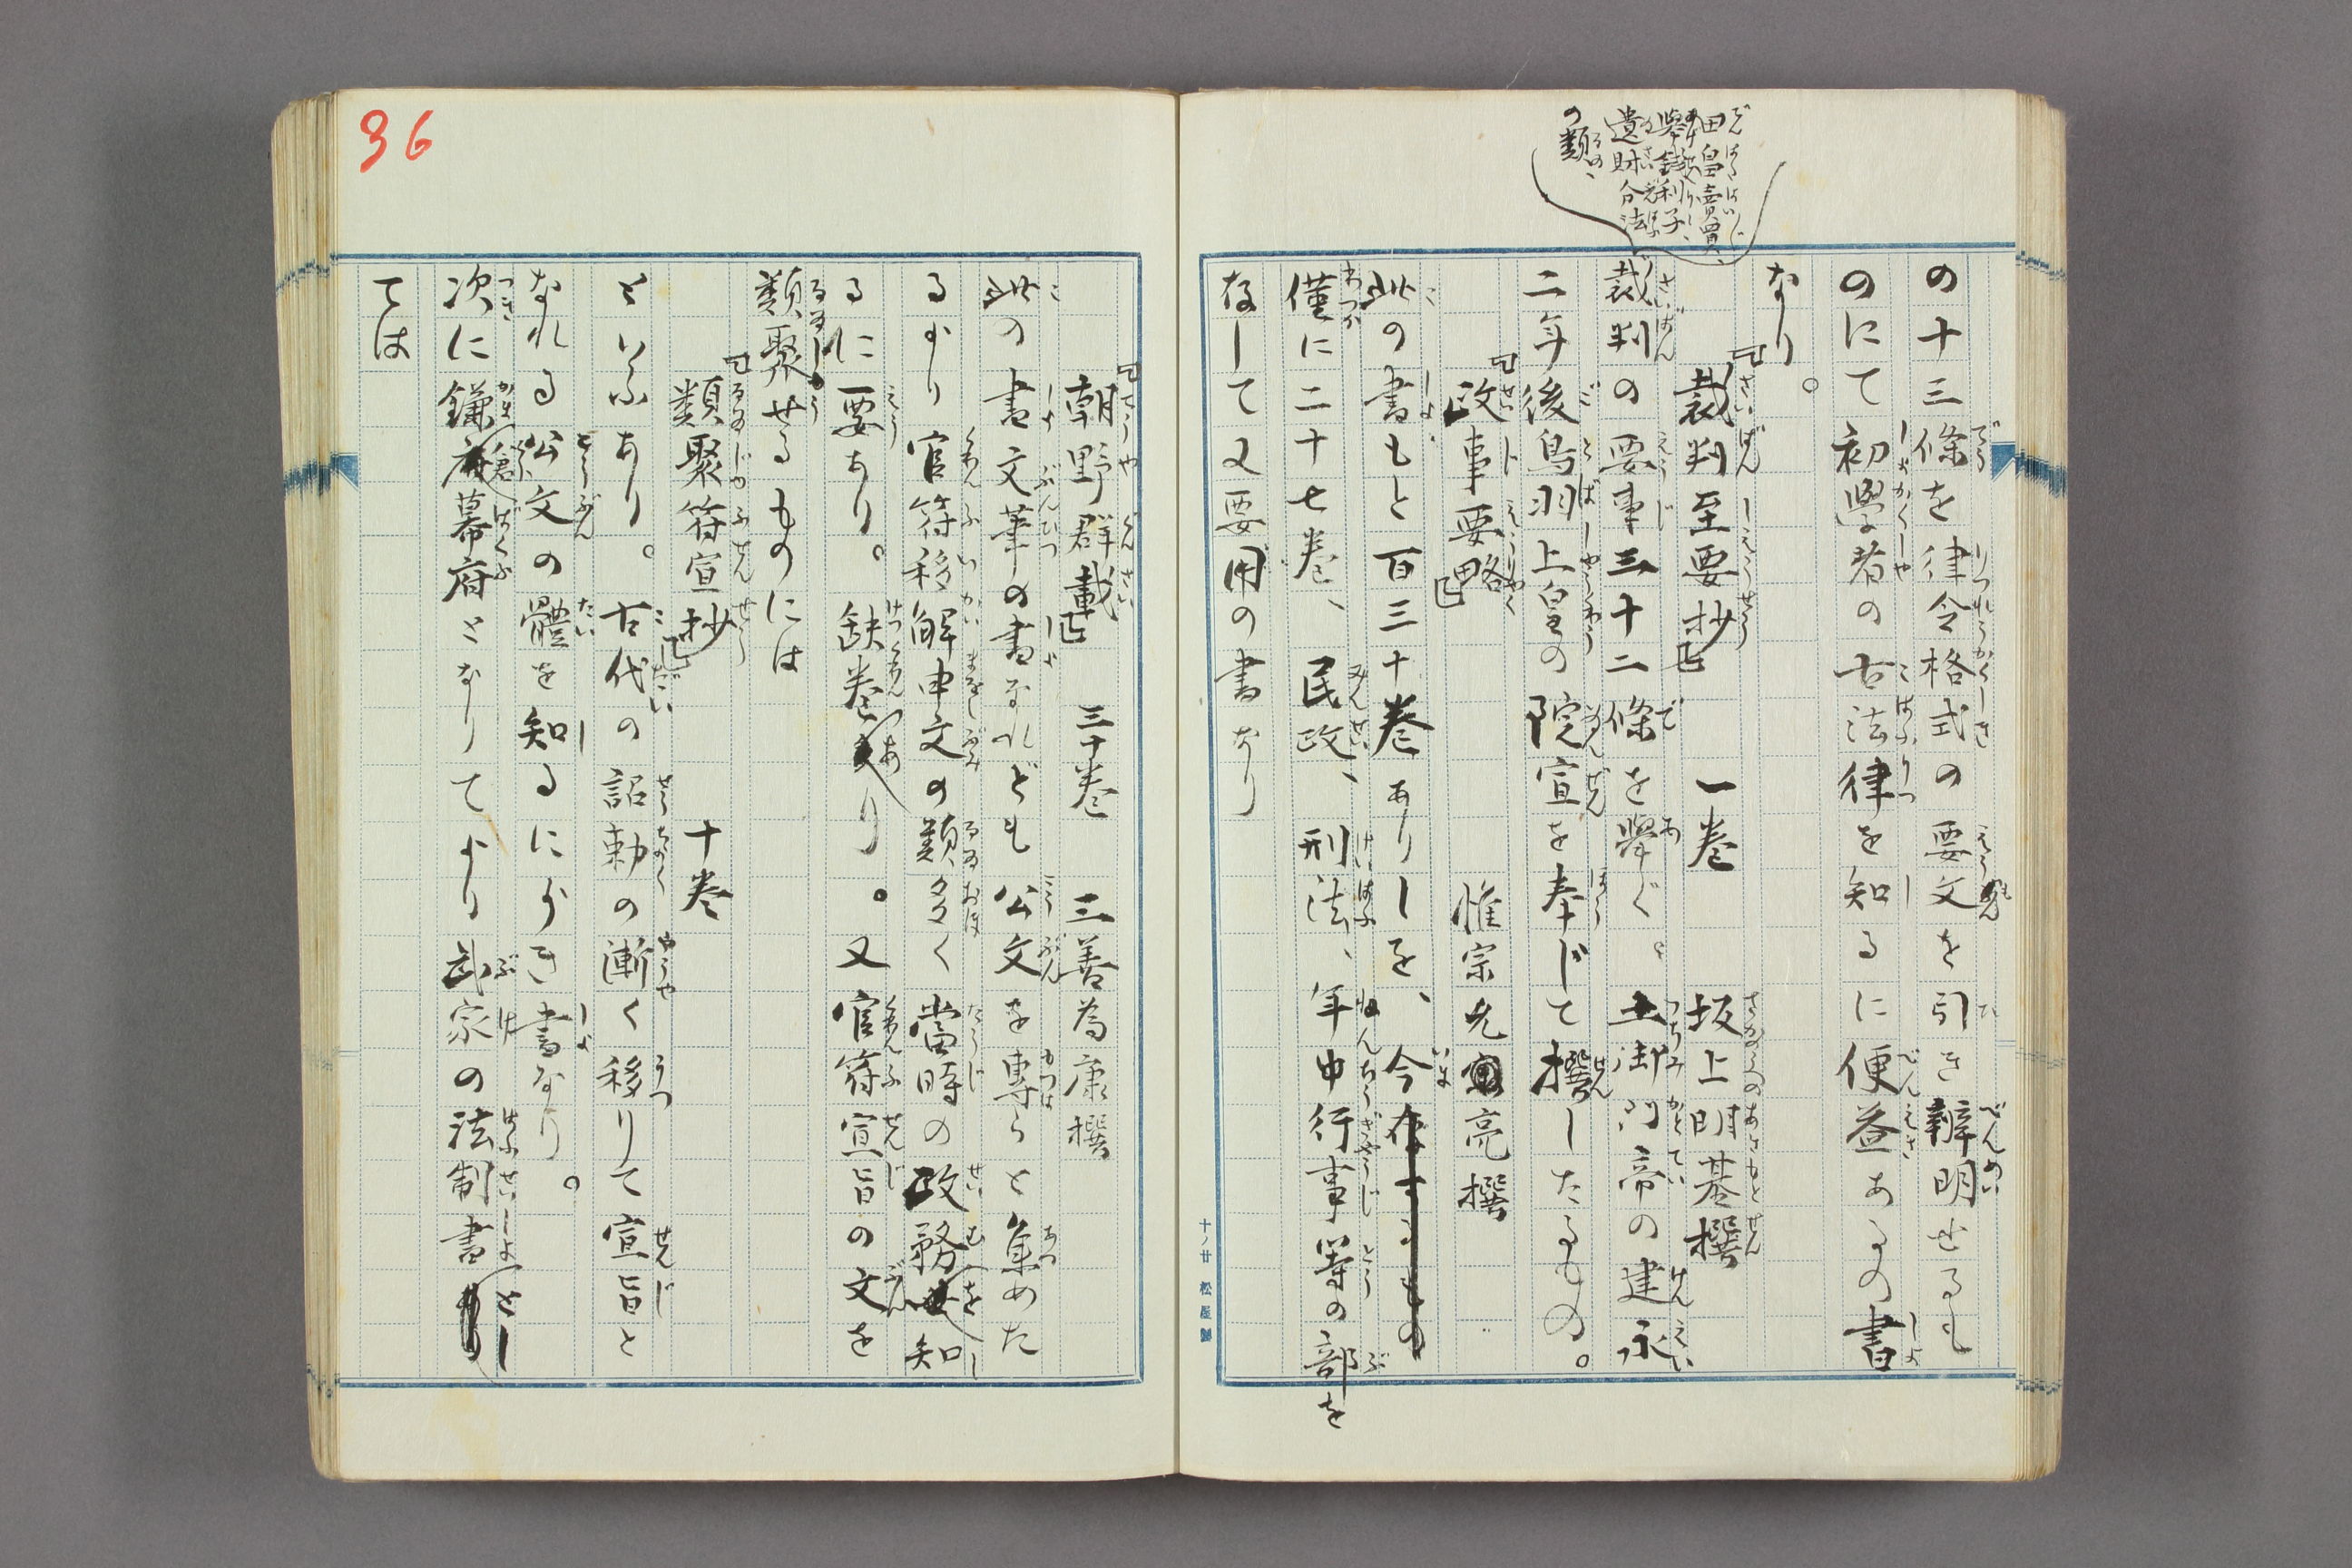 田畠賣買、
擧錢利子、
遺財處分法
の類、
の十三條を律令格式の要文を引き辨明せるも
のにて初學者の古法律を知るに便益あるの書
なり。
裁判至要抄　一卷　坂上明基撰
裁判の要事三十二條を擧ぐ。土御門帝の建永
二年後鳥羽上皇の院宣を奉じて撰したるもの。
政事要略　惟宗允亮撰
此の書もと百三十卷ありしを、今存するもの
僅に二十七卷、民政、刑法、年中行事等の部を
存して又要用の書なり
十ノ廿 松屋製
36
朝野群載　三十卷　三善為康撰
此の書文筆の書なれども公文を専らと集めた
るより官符移解申文の類多く當時の政務を知
るに要あり。缺卷あり。又官符宣旨の文を
類聚せるものには
類聚符宣抄　十卷
といふあり。古代の詔勅の漸く移りて宣旨と
なれる公文の體を知るによき書なり。
次に鎌倉幕府となりてより武家の法制書とし
ては